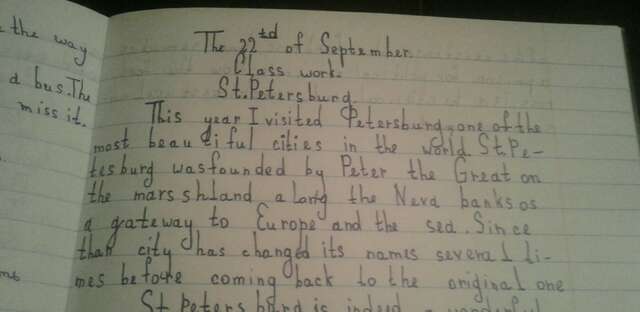 the way
a bus. The
miss it.
The 22td of September.
Class work.
St. Petersburg.
This year I visited Petersburg, one of the
most beautiful cities in the world. St. Pe-
tesburg was founded by Peter the Great on
the marsshland along the Neva banks as
a gateway to Europe and the sea. Since
than city has changed its names several ti-
mes before coming back to the original one
St. Petersburg is indeed a wonderful